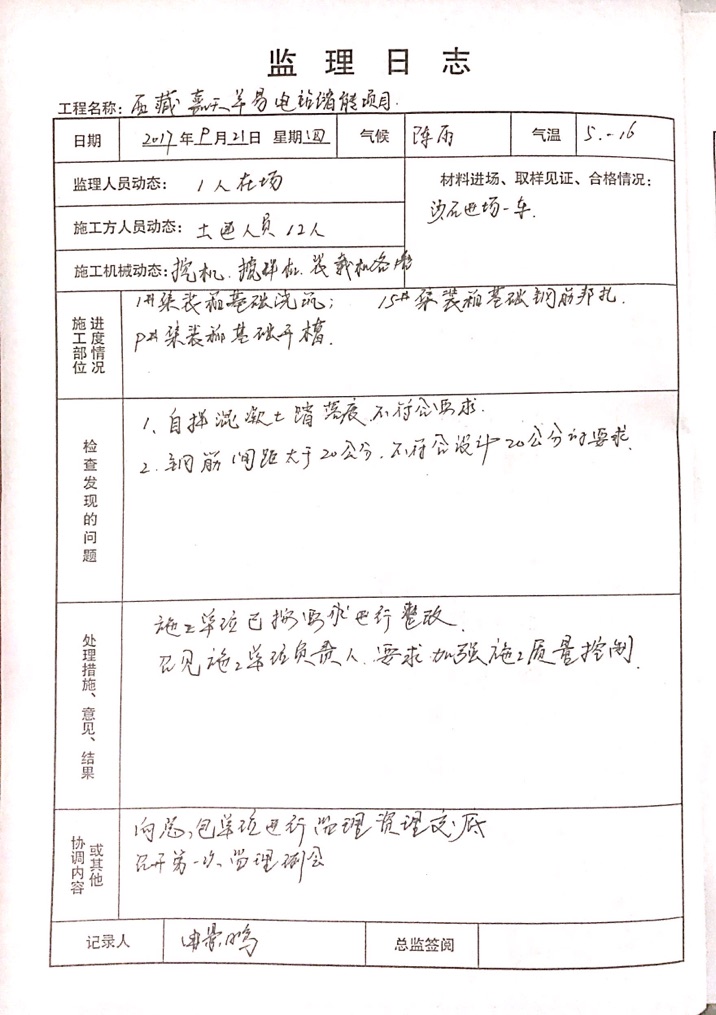 监理日志
工程名称：西藏嘉天羊易电站储能项目.
日期 2017年9月21日 星期四 气候 阵雨 气温 5.-16
监理人员动态： 1人在场
材料进场、取样见证、合格情况：
沙石进场一车.
施工方人员动态：土建人员12人
施工机械动态：挖机.搅拌机.装载机各壹
施工部位
进度情况
1#集装箱基础浇筑； 15#集装箱基础钢筋邦扎.
9#集装箱基础开槽.
检查发现的问题
1、自拌混凝土塌落度不符合要求.
2.钢筋间距大于20公分.不符合设计20公分的要求.
处理措施、意见、结果
施工单位已按要求进行整改.
召见施工单位负责人.要求加强施工质量控制.
协调内容
或其他
向总包单位进行监理资理交底
召开第一次监理例会
记录人 鹏 总监签阅